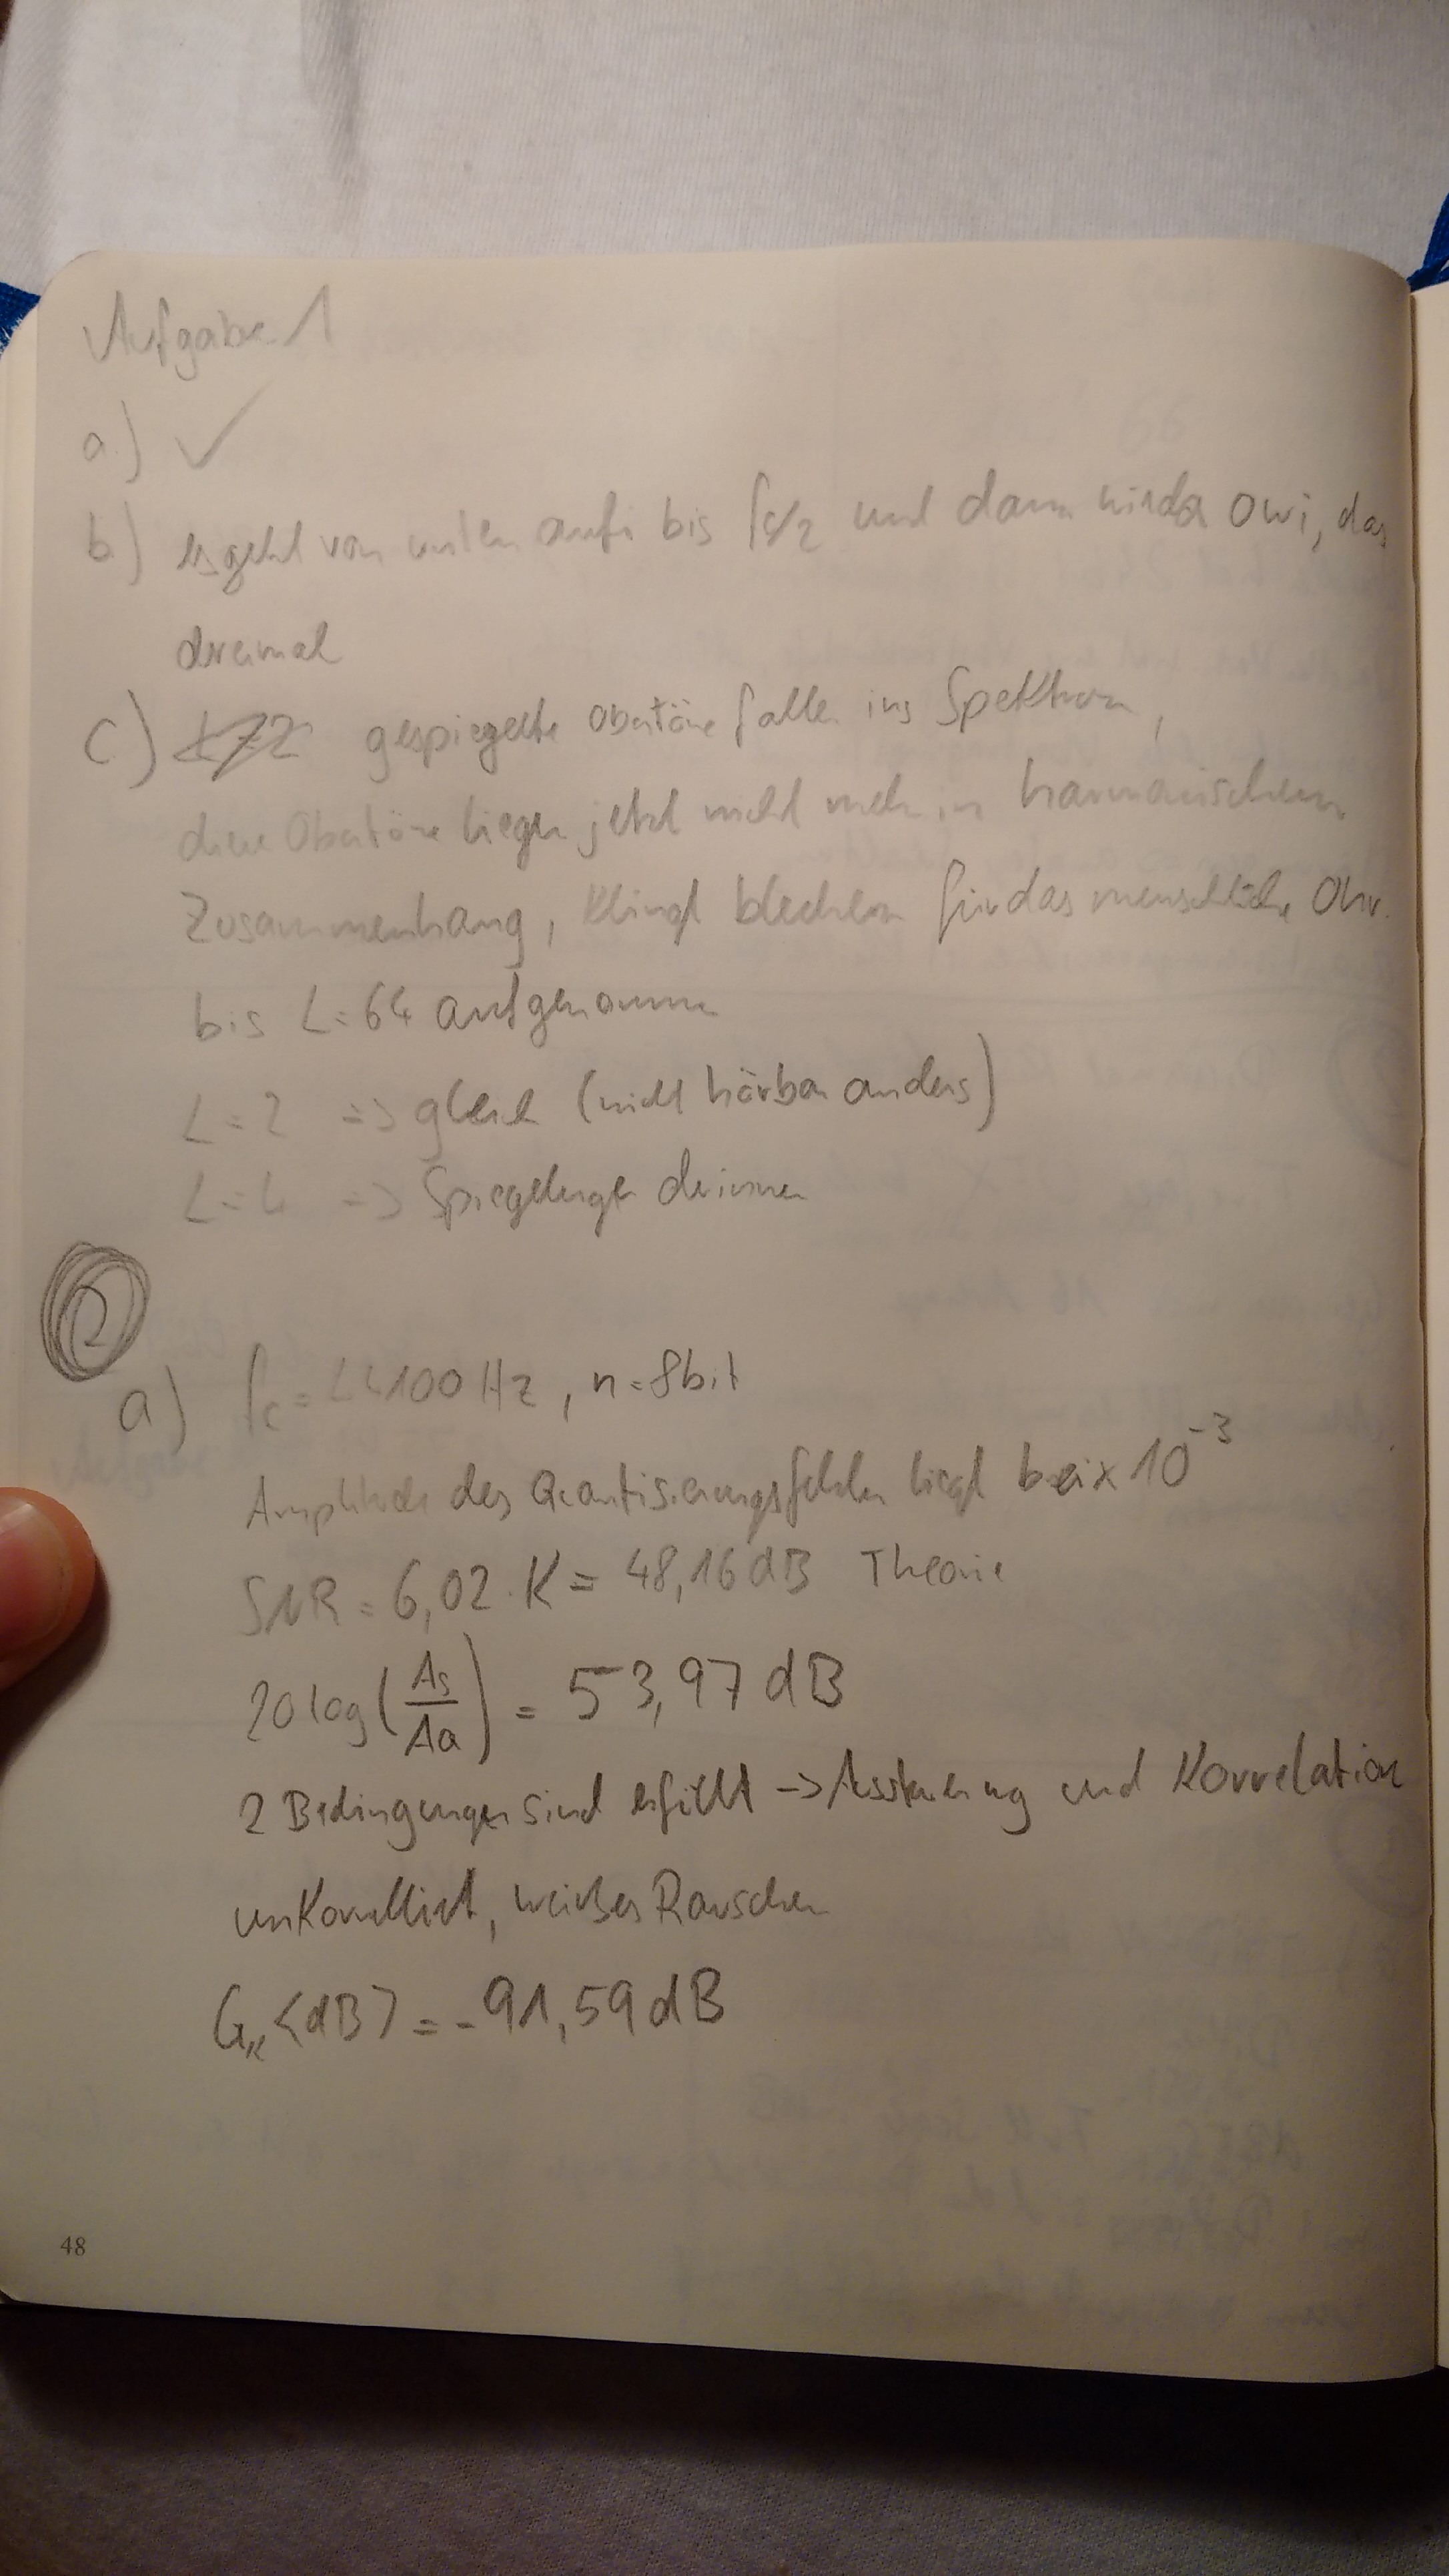 Aufgabe 1
a) ✓
b) es geht von unten aufi bis fs/2 und dann wieda owi, das
dreimal
c) gespiegelte Obertöne fallen ins Spektrum,
diese Obertöne liegen jetzt nicht mehr in harmonischem
Zusammenhang, klingt blechern für das menschliche Ohr.
bis L=64 aufgenommen
L=2 => gleich (nicht hörbar anders)
L=4 => Spiegelungen drinnen
2
a) fc = 44100 Hz, n=8bit
Amplitude des Quantisierungsfehlers liegt bei x 10^-3
SNR = 6,02 · K = 48,16 dB Theorie
20 log (As/Aa) = 53,97 dB
2 Bedingungen sind erfüllt -> Aussteuerung und Korrelation
unkorreliert, weißes Rauschen
<dB> = -91,59 dB
48